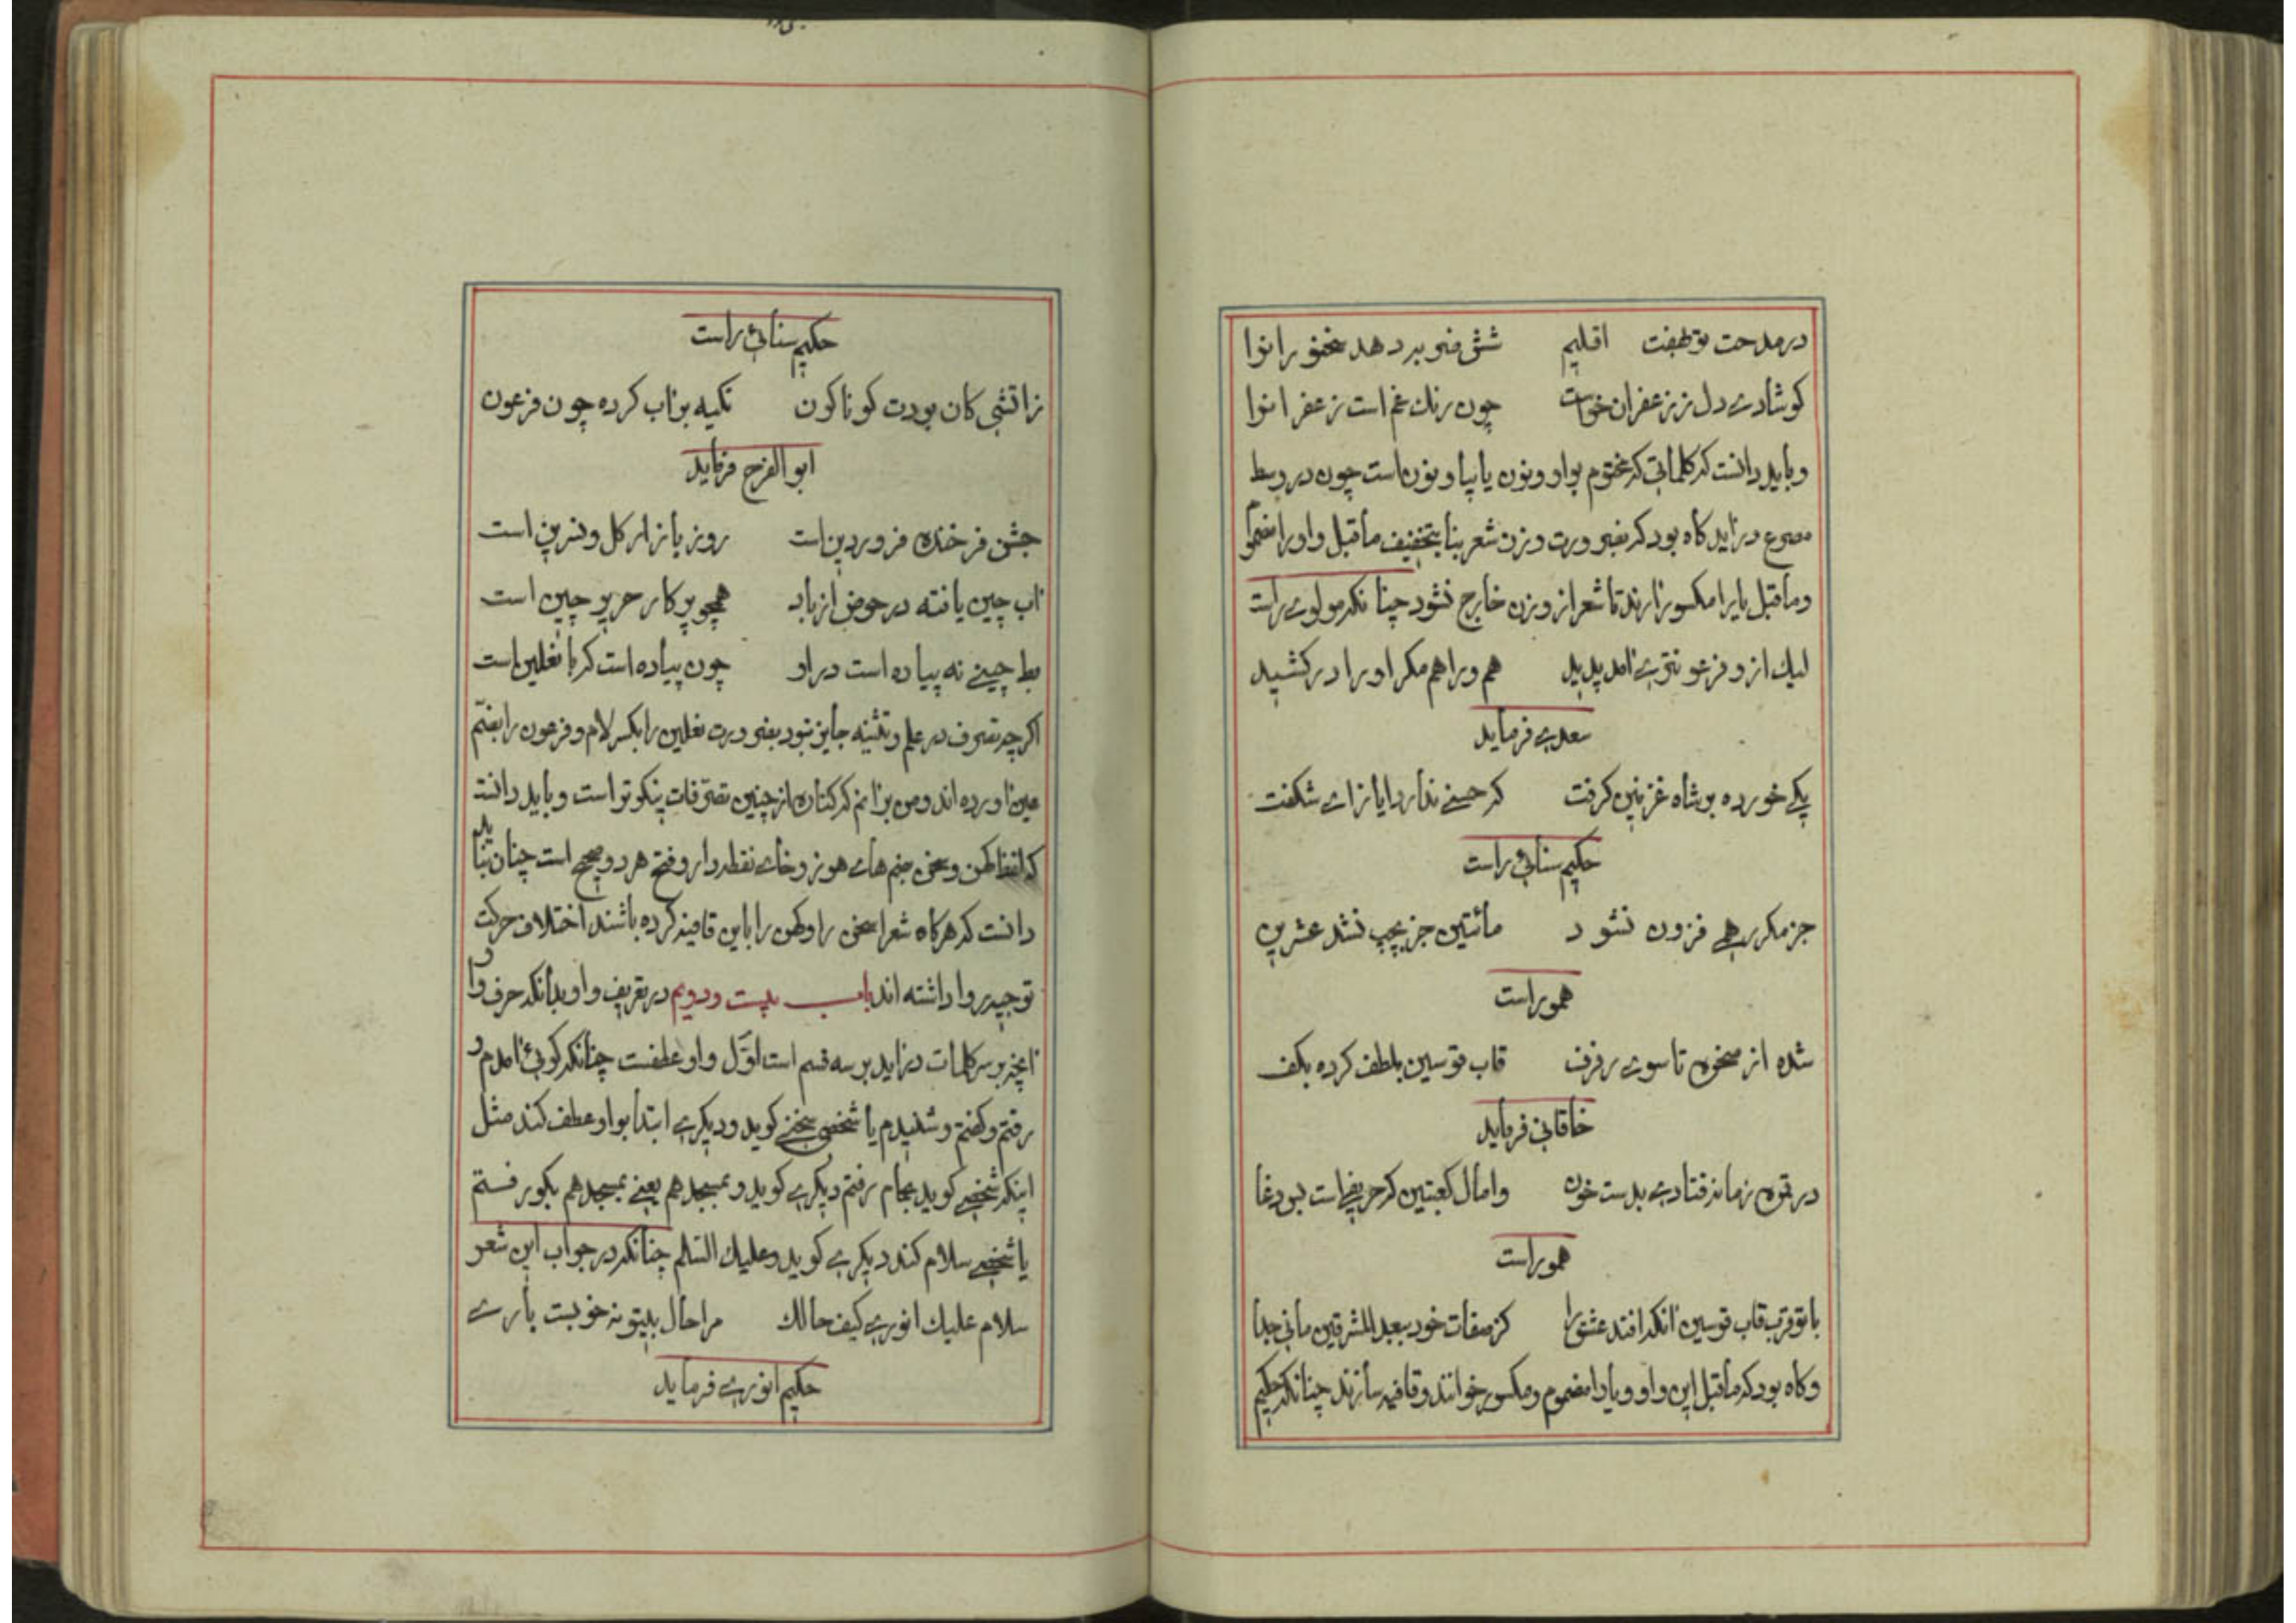 در مدحت تو بهفت اقلیم شش ضرب دهد سخنور انوا
کو شادی دل ز زعفران خواست چون رنک غم است زعفرانوا
و باید دانست که کلماتی که مختوم بواو و نون یا بیا و نون است چون در وسط
مصرع دراید کاه بود که بضرورت وزن شعر بنا بتخفیف ماقبل واو را مضموم
و ماقبل یا را مکسور ارند تا شعر از وزن خارج نشود چنانکه مولوی راست
لیک ازو فرعون‌تری امد پدید هم ورا هم مکر او را در کشید
سعدی فرماید
یکی خورده بر شاه غزنین کرفت که حسنی ندارد ایاز ای شکفت
حکیم سنائی راست
جز مکرر همی فزون نشود مائتین جز بجیب نشد عشرین
همو راست
شده از صخره تا سوی رفرف قاب قوسین بلطف کرده بکف
خاقانی فرماید
در قمره زمانه فتادی بدست خون وامال کعبتین که حریفی است بس دغا
همو راست
با تو قرب قاب قوسین انکه افتد عشق را کز صفات خود ببعد المشرقین مانی جدا
و کاه بود که ماقبل این واو و یا را مضموم و مکسور خوانند و قافیه سازند چنانکه حکیم
حکیم سنائی راست
زاتشی کان بودت کوناکون تکیه بر اب کرده چون فرعون
ابو الفرج فرماید
جشن فرخنده فروردین است روز بازار کل و نسرین است
اب چین یافته در حوض از باد همچو پرکار حریر چین است
بط چینی نه پیاده است در او چون پیاده است که با نعلین است
اکرچه تصرف در علم و تثنیه جایز نبود بضرورت نعلین را بکسر لام و فرعون را بضم
عین اورده اند و من برانم که کناره از چنین تصرفات نیکوتر است و باید دانست
که لفظ کهن و سخن بضم های هوز و خای نقطه دار و فتح هر دو صحیح است چنان باید
دانست که هرکاه شعرا سخن را و کهن را با این قافیه کرده باشند اختلاف حرکت
توجیه روا داشته اند باب بیست و دویم در تعریف واو بدانکه حرف واو
انچه بر سر کلمات دراید بر سه قسم است اول واو عطفست چنانکه کوئی امدم و
رفتم و کفتم و شنیدم یا شخصی سخنی کوید و دیکری ابتدا بواو عطف کند مثل
اینکه شخصی کوید بحمام رفتم دیکری کوید و بمسجد هم یعنی بمسجد هم بکو رفتم
یا شخصی سلام کند دیکری کوید و علیک السلم چنانکه در جواب این شعر
سلام علیک انوری کیف حالک مرا حال بیتو نه خوبست باری
حکیم انوری فرماید